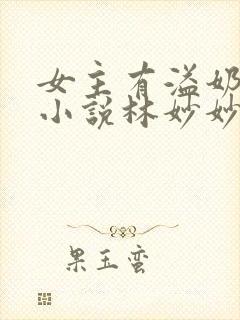 女主有溢奶
小說林妙妙
果玉蛮